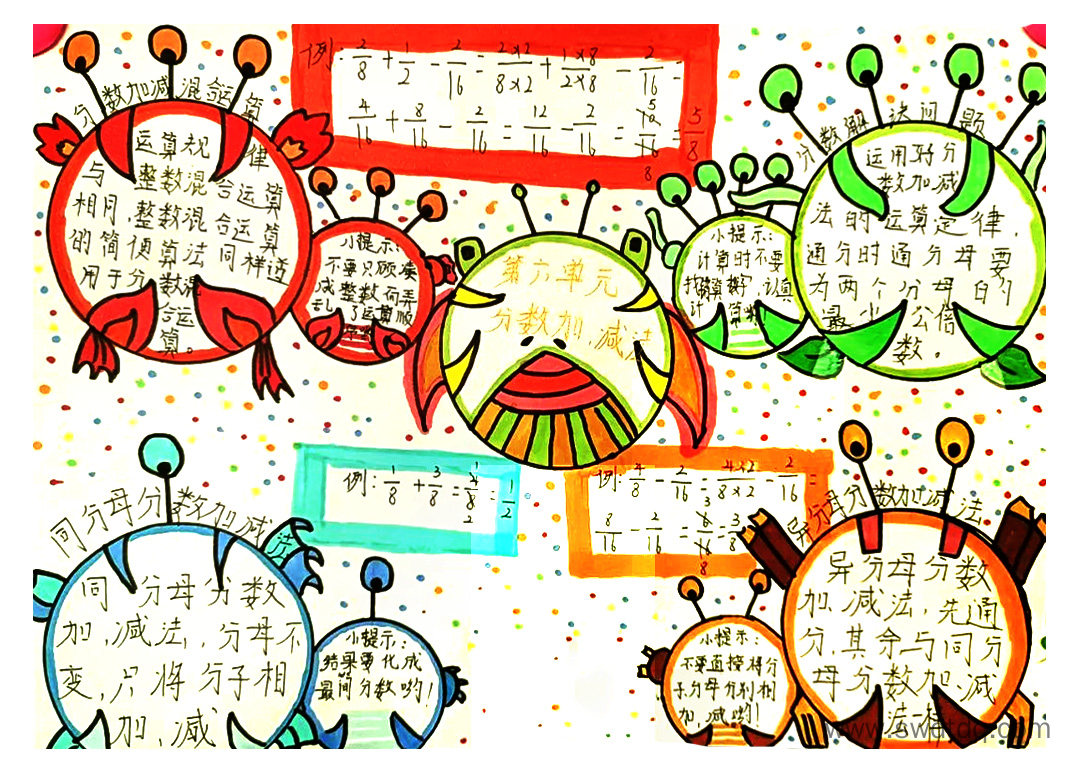 例: 2/8 + 1/2 - 2/16 = 2×2/8×2 + 1×8/2×8 - 2/16 =
4/16 + 8/16 - 2/16 = 12/16 - 2/16 = 10/16 = 5/8
分数加减混合运算
运算规律
与整数混合运算
相同,整数混合运算
的简便算法同样适
用于分数混
合运
算。
小提示:
不要只顾凑
减整数而弄
乱了运算顺
第六单元
分数加、减法
小提示:
计算时不要
认真
计算哟!
分数解决问题
运用好分
数加减
法的运算定律,
通分时通分母要
为两个分母的
最小公倍
数。
例: 1/8 + 3/8 = 4/8 = 1/2
例: 4/8 - 2/16 = 4×2/8×2 - 2/16 =
8/16 - 2/16 = 6/16 = 3/8
同分母分数加减法
同分母分数
加、减法,分母不
变,只将分子相
加、减
小提示:
结果要化成
最简分数哟!
异分母分数加减法
异分母分数
加、减法,先通
分,其余与同分
母分数加、减
法一样
小提示:
不要直接将分
子分母分别相
加、减哟!